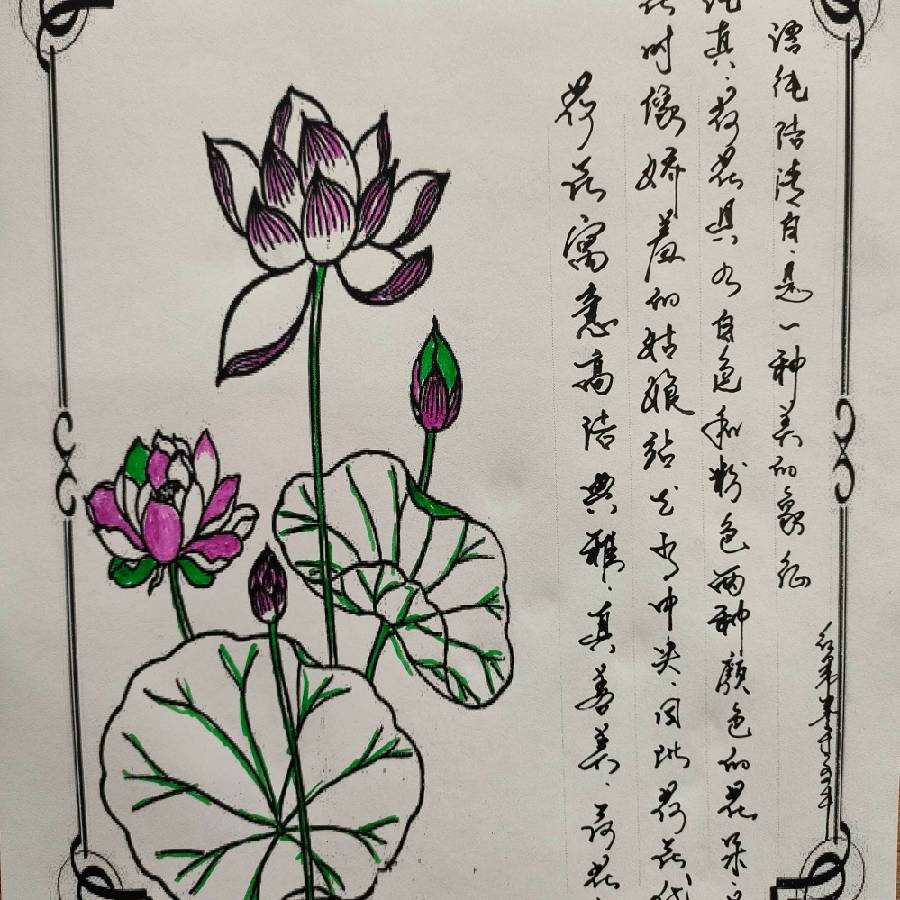 荷花寓意高洁典雅、真善美、荷花
花时像娇羞的姑娘站立水中央、因此荷花代
纯真、荷花具有白色和粉色两种颜色的花朵
纯洁清白、是一种美的象征